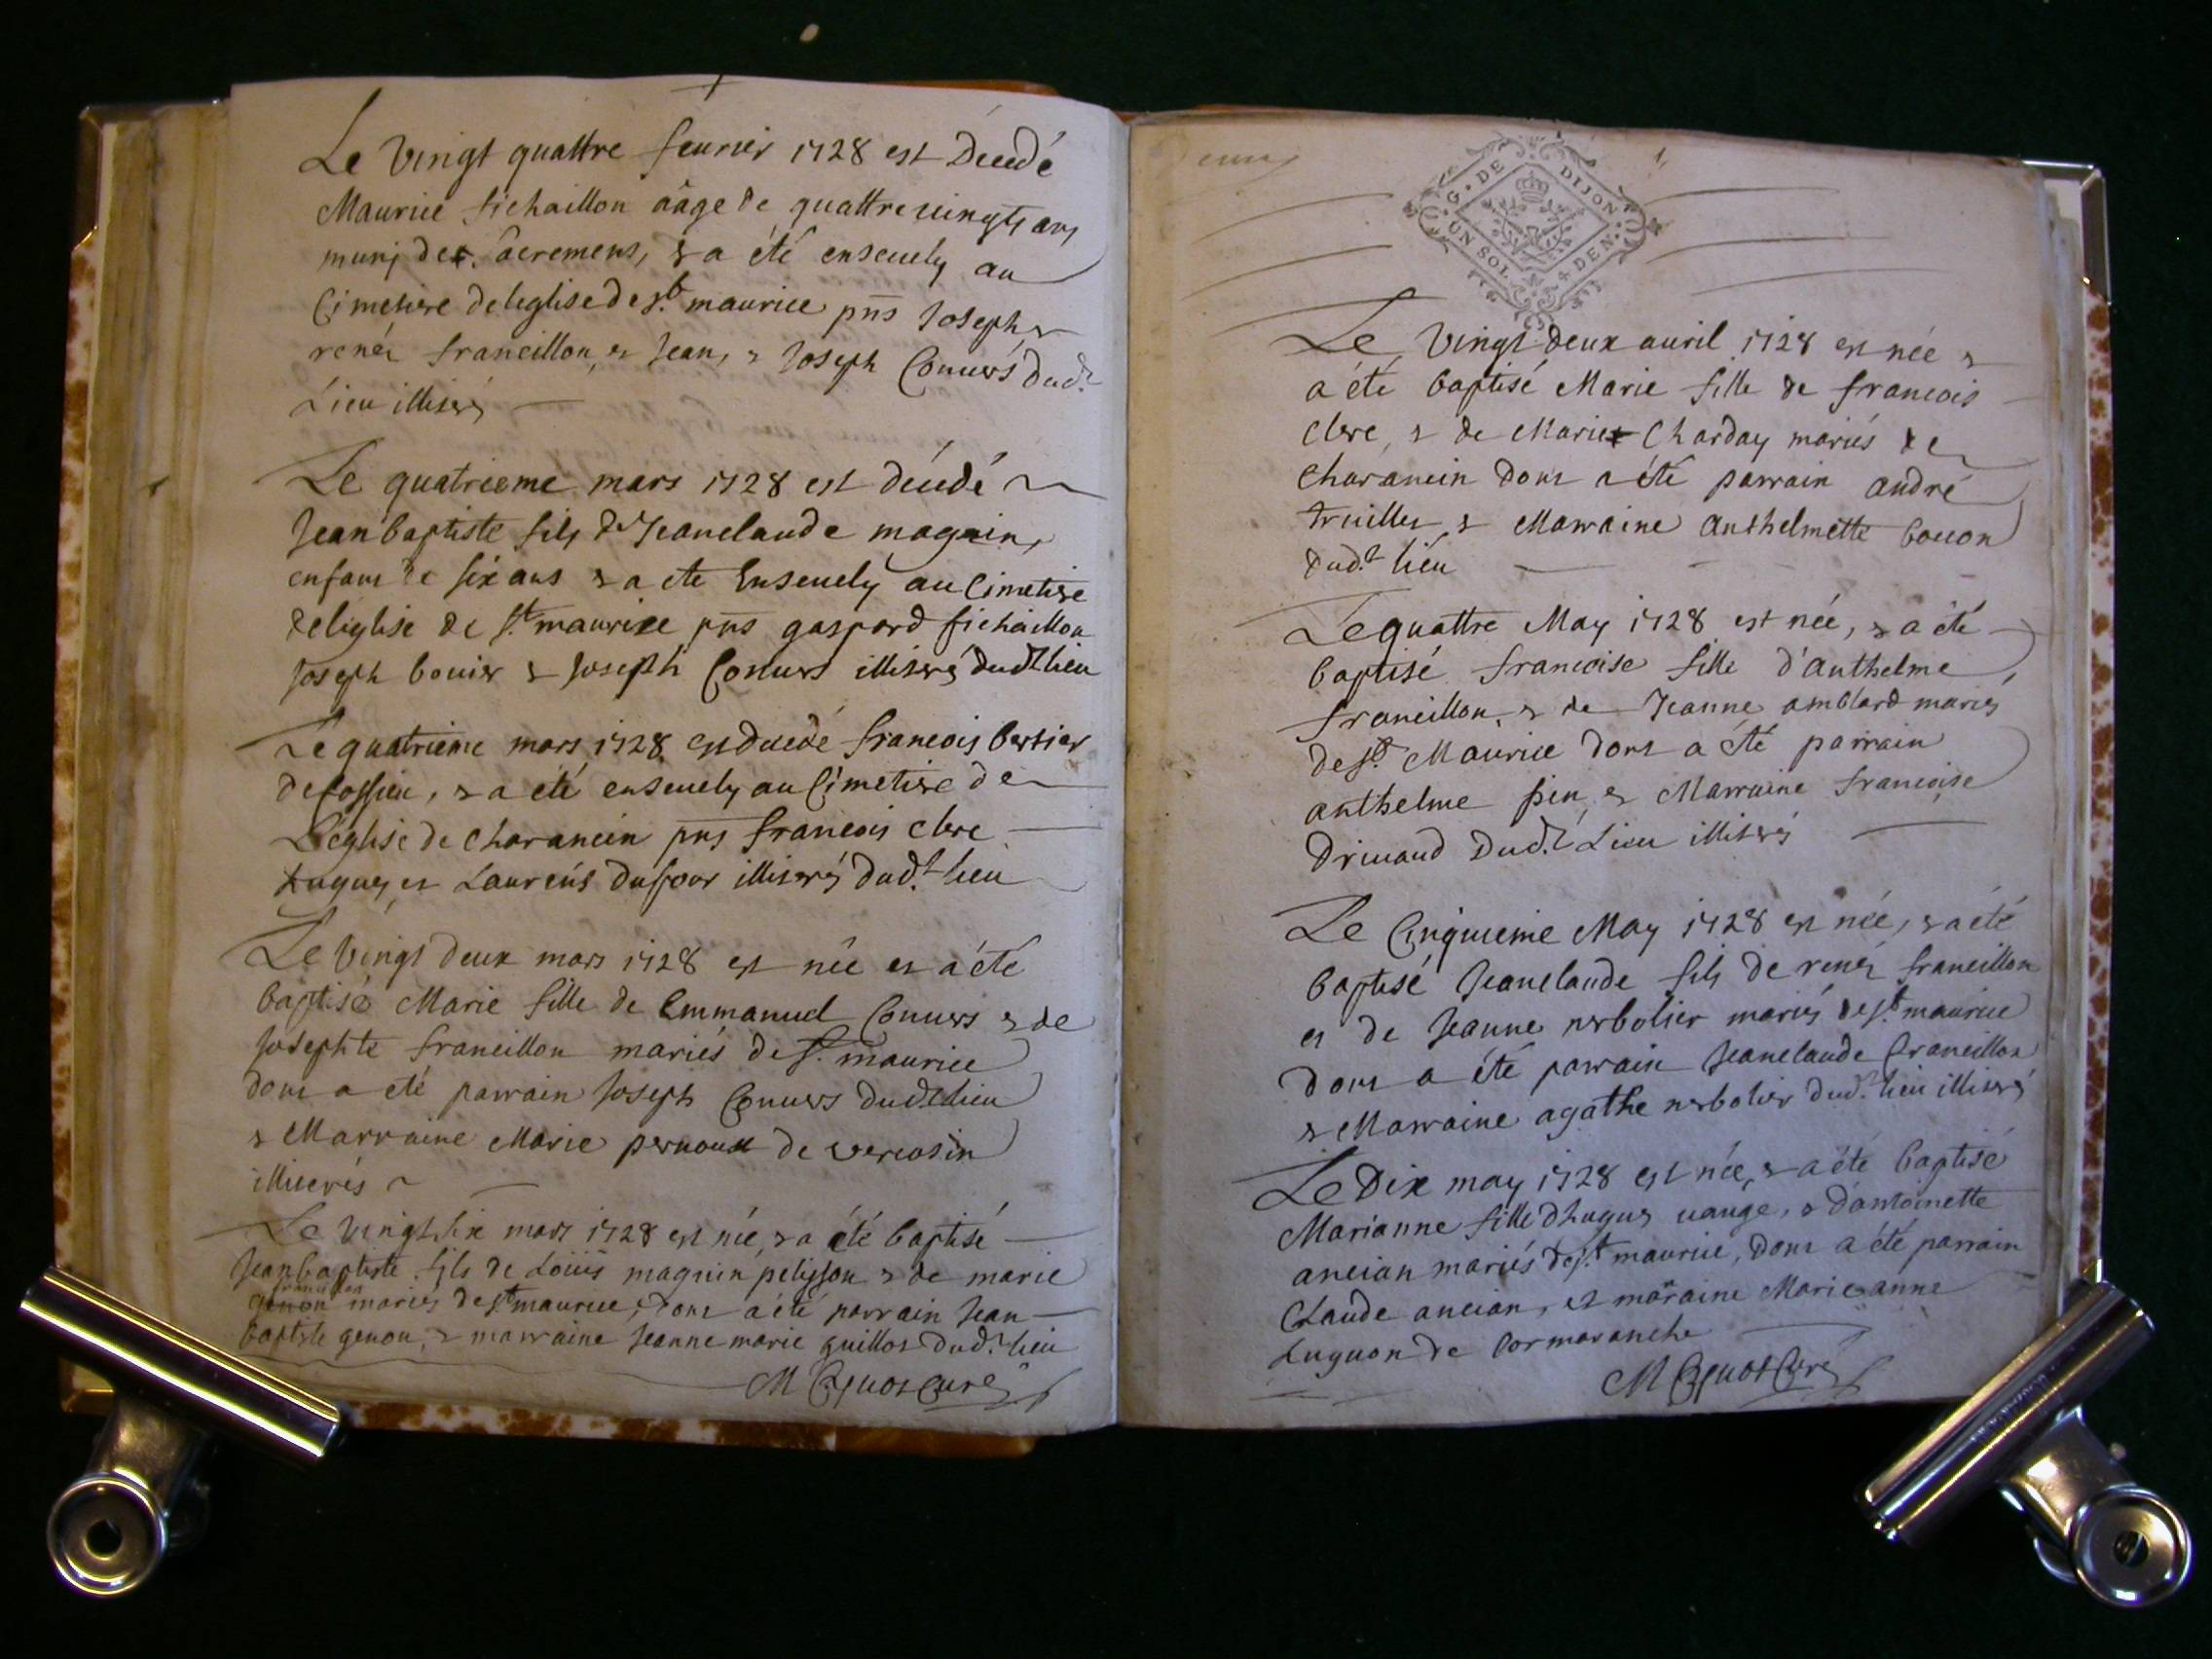 Le vingt quattre feurier 1728 est décédé
Maurice fichaillon aâge de quattre vingts ans
muni des sacremens, & a été enseuely au
Cimetiere de leglise de st. maurice pns Joseph, &
renéz francillon, et Jean, & Joseph Conuers dud.t
Lieu illiterés
Le quatrieme mars 1728 est décédé
Jean baptiste fils de Jeanclaude magnin,
enfant de six ans & a ete Enseuely au Cimetiere
de leglise de st. maurice pns gaspard fichaillon
Joseph bouier & Joseph Conuers illiterés dudt lieu
Le quatrieme mars 1728 est décedé francois bertier
de cossieu, & a été enseuely au Cimetiere de
L'église de charancin pns francois clerc
hugues et Laurens dufour illiterés dud.t lieu
Le vingt deux mars 1728 est née et a été
baptisé Marie fille de Emmanuel Conuers & de
Josephte francillon mariés de st. maurice
dont a eté parrain Joseph Conuers dud.t lieu
& Marraine Marie pernoux de vercosin
illiterés
Le vingt six mars 1728 est née, & a été baptisé
Jean baptiste fils de Loüis magnin pelisson & de marie
francillon
genon mariés de st maurice, dont a été parrain Jean
baptiste genon, & marraine Jeanne marie guillot dud.t lieu
M Curé
G. DE DIJON
UN SOL 4 DEN.
Le vingt deux auril 1728 est née &
a été baptisé Marie fille de francois
clerc, & de Marie Charday mariés de
charancin dont a été parrain andré
truillet, & Marraine anthelmette bouon
dud.t lieu
Le quattre May 1728 est née, & a été
baptisé francoise fille d'anthelme
francillon, & de Jeanne amblard mariés
de st. Maurice dont a été parrain
anthelme pin, et Marraine francoise
Driuaud dud.t Lieu illiterés
Le Cinquieme May 1728 est née, & a été
baptisé Jeanclaude fils de renéz francillon
et de Jeanne nerbolier mariés de st. maurice
dont a été parrain Jeanclaude francillon
& Marraine agathe nerbolier dud.t lieu illiterés
Le Dix may 1728 est née, & a été baptisé
Marianne fille d'hugues uauge, & d'antoinette
ancian mariés de st. maurice, dont a été parrain
Claude ancian, et maraine Marieanne
Luguon de Cormaranche
M Curé